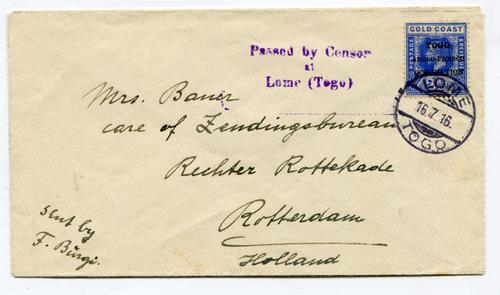 Passed by Censor
at
Lome (Togo)
GOLD COAST
POSTAGE
TOGO
ANGLO-FRENCH
OCCUPATION
LOME
16.7.16.
TOGO
Mrs. Bauer
care of Zendingsbureau
Rechter Rottekade
Rotterdam
Holland
sent by
F. Bürgi.